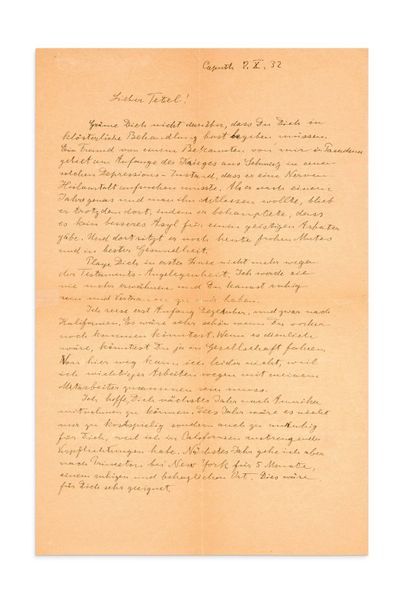 Caputh 8. X. 32
Lieber Tetel!
Gräme Dich nicht darüber, dass Du Dich in
klösterliche Behandlung hast begeben müssen.
Ein Freund von einem Bekannten von mir in
geriet am Anfange des Krieges aus Schmerz in einen
solchen Depressions-Zustand, dass er eine Nerven-
Heilanstalt aufsuchen musste. Als er nach einem
Jahre genas und man ihn entlassen wollte, blieb
er trotzdem dort, indem er behauptete, dass
es kein besseres Asyl für einen geistigen Arbeiter
gäbe. Und dort sitzt er noch heute frohen Mutes
und in bester Gesundheit.
Plage Dich in erster Linie nicht mehr wegen
der Testaments-Angelegenheit. Ich werde sie
nie mehr erwähnen und Du kannst ruhig
sein und Vertrauen zu mir haben.
Ich reise erst Anfang Dezember, und zwar nach
Kalifornien. Es wäre sehr schön wenn Du vorher
noch kommen könntest. Wenn es dienlich
wäre, könntest Du ja in Gesellschaft fahren.
Von hier weg kann ich leider nicht, weil
ich wichtiger Arbeiten wegen mit meinem
Mitarbeiter zusammen sein muss.
Ich hoffe, Dich nächstes Jahr nach Amerika
mitnehmen zu können. Dies Jahr wäre es nicht
nur zu kostspielig sondern auch zu unruhig
für Dich, weil ich in Californien anstrengende
Verpflichtungen habe. Nächstes Jahr gehe ich aber
nach Princeton bei New York für 5 Monate,
einem ruhigen und behaglichen Ort. Dies wäre
für Dich sehr geeignet.